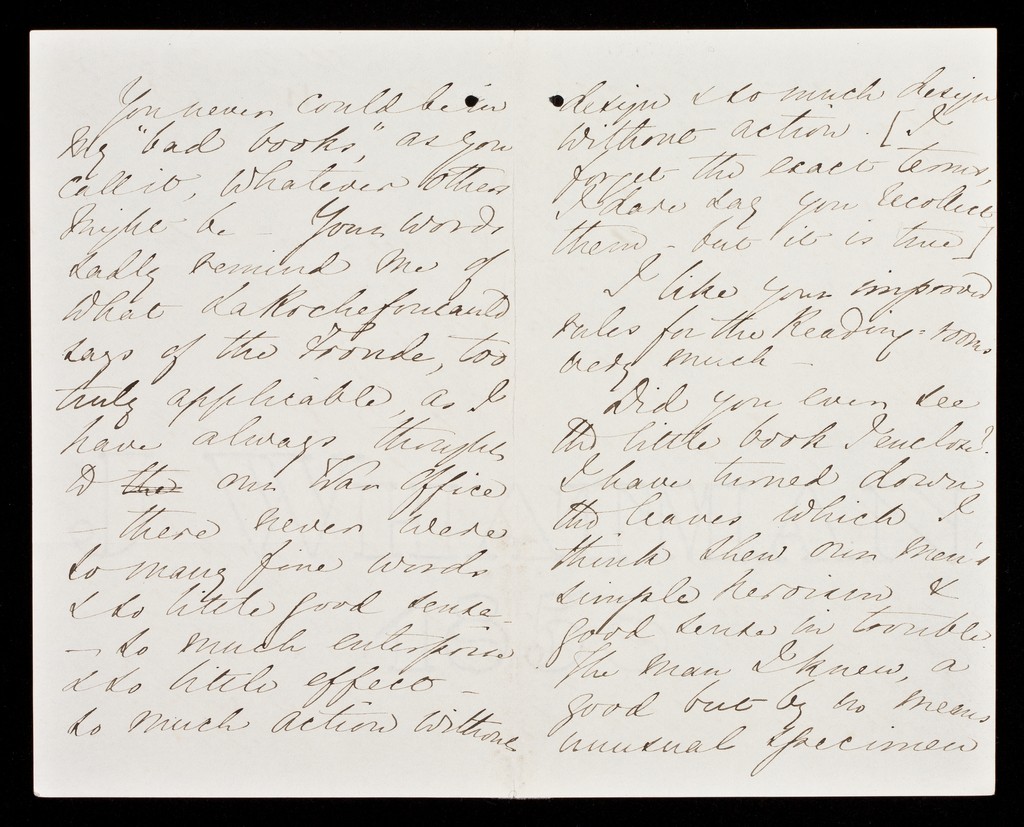 You never could be in
my "bad books," as you
call it, whatever others
might be – Your words
sadly remind me of
what LaRochefoucauld
says of the Fronde, too
truly applicable, as I
have always thought
to our War Office
– there never were
so many fine words
& so little good sense –
– so much enterprise
& so little effect –
so much action without
design & so much design
without action. [I
forget the exact terms,
I dare say you recollect
them – but it is true]
I like your improved
rules for the Reading-rooms
very much –
Did you ever see
the little book I enclose?
I have turned down
the leaves which I
think shew our men's
simple heroism &
good sense in trouble.
The man I knew, a
good but by no means
unusual specimen